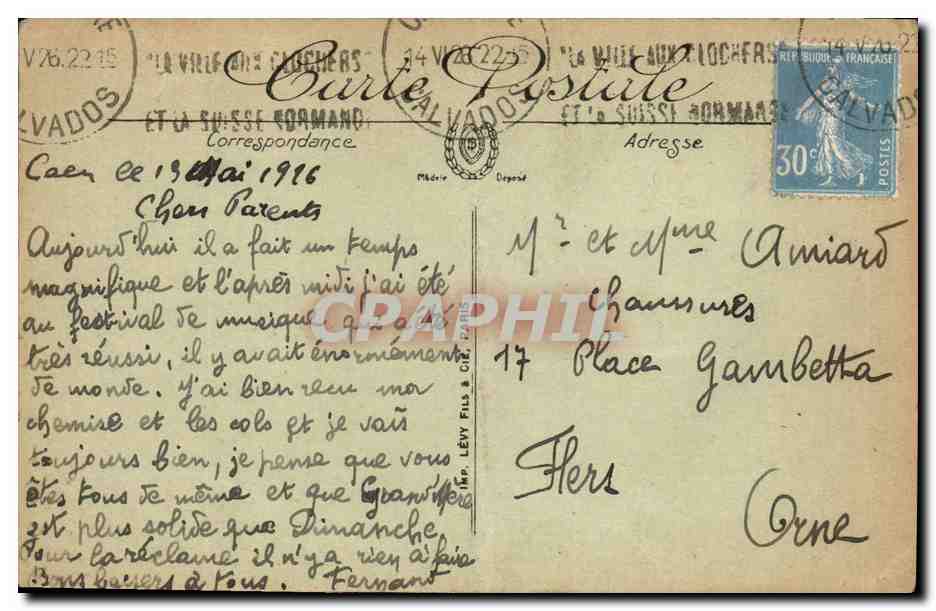 V 26. 22-15
CALVADOS
"LA VILLE AUX CLOCHERS
ET LA SUISSE NORMANDE
14 VI 26 22-15
CALVADOS
"LA VILLE AUX CLOCHERS
ET LA SUISSE NORMANDE
14 V 26 22
CALVADOS
Carte Postale
Correspondance
Adresse
Modèle Déposé
REPUBLIQUE FRANÇAISE
POSTES
30c
Caen le 13 Mai 1926
Chers Parents
Aujourd'hui il a fait un temps
magnifique et l'après midi j'ai été
au festival de musique qui a été
très réussi, il y avait énormément
de monde. J'ai bien reçu ma
chemise et les cols et je vais
toujours bien, je pense que vous
êtes tous de même et que Grand'Mère
est plus solide que Dimanche
Pour la réclame il n'y a rien à faire
Bons baisers à tous. Fernand
IMP. LÉVY FILS & CIE, PARIS
Mr et Mme Amiard
Chaussures
17 Place Gambetta
Flers
Orne
CPAPHIL